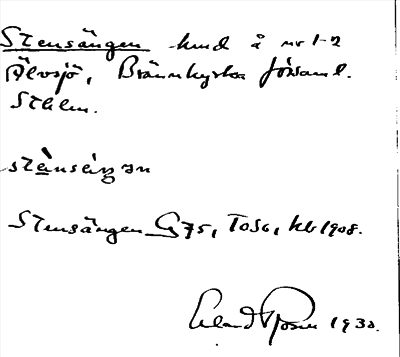 Stensängen hmd å nr 1-2
Älvsjö, Brännkyrka församl.
Sthlm.
stènsèŋən
Stensängen G 75, T 056, kb 1908.
Rosén 1930.